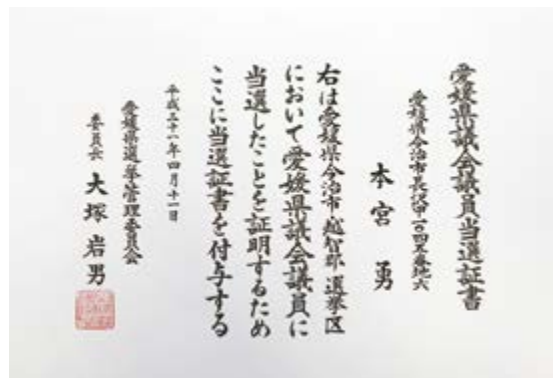 愛媛県議会議員当選証書
愛媛県今治市長沢甲一〇四番地六
本宮 勇
右は愛媛県今治市越智郡選挙区
において愛媛県議会議員に
当選したことを証明するため
ここに当選証書を付与する
平成三十一年四月十一日
愛媛県選挙管理委員会
委員長 大塚岩男